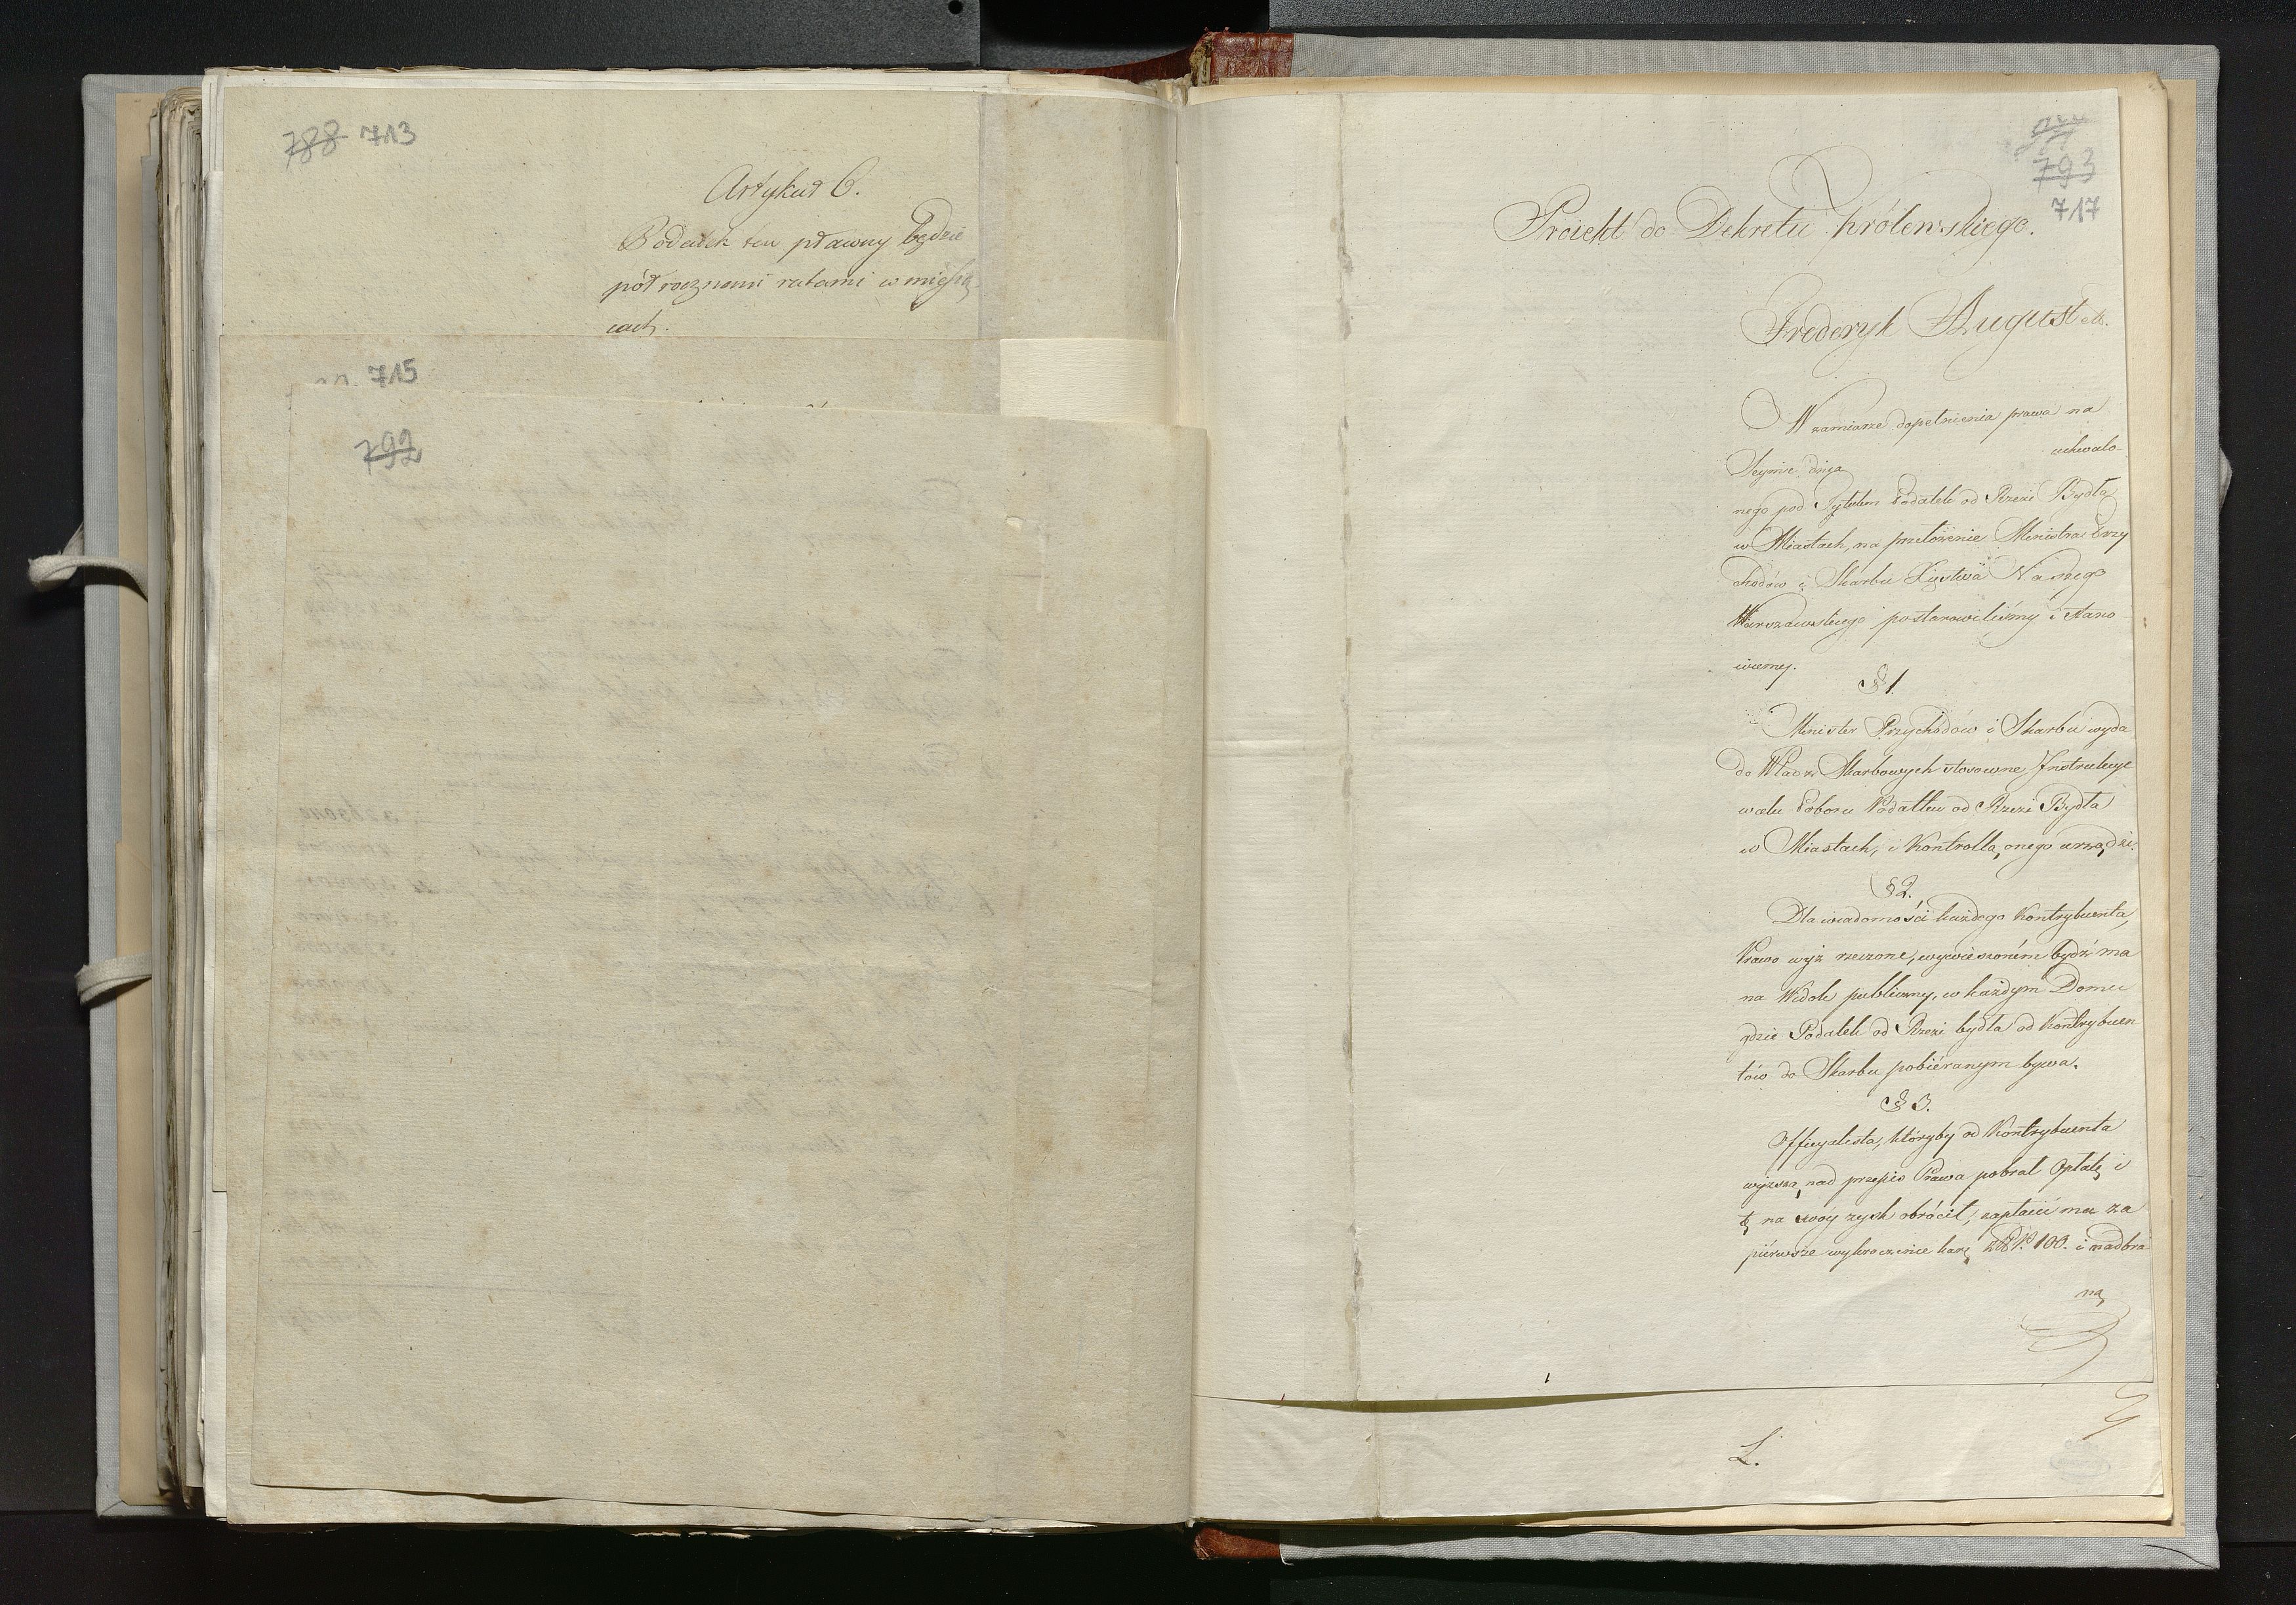 788 713
Artykuł 6.
Podatek ten pławny będzie
półrocznemi ratami w miesią
cach.
715
792
793
717
Proiekt do Dekretu Królewskiego.
Frederyk August etc.
W zamiarze dopełnienia prawa na
Seymie dnia uchwalo-
nego pod Tytułem Podatek od Rzezi Bydła
w Miastach, na przełożenie Ministra Przy
chodów i Skarbu Xięstwa Naszego
Warszawskiego postanowiliśmy i stano
wiemy.
§ 1.
Minister Przychodów i Skarbu wyda
do Władz Skarbowych stosowne Instrukcye
w celu Poboru Podatku od Rzezi Bydła
w Miastach, i Kontrollą onego urządzi.
§ 2.
Dla wiadomości każdego Kontrybuenta,
Prawo wyż rzeczone, wywieszoném bydź ma
na Widok publiczny, w każdym Domu
gdzie Podatek od Rzezi bydła od Kontrybuen
tów do Skarbu pobiéranym bywa.
§ 3.
Officyalista, któryby od Kontrybuenta
wyższą nad przepis Prawa pobrał Opłatę i
tę na swóy zysk obrócił, zapłacić ma za
piérwsze wykroczenie karę 100. i nadbra
ną
L.